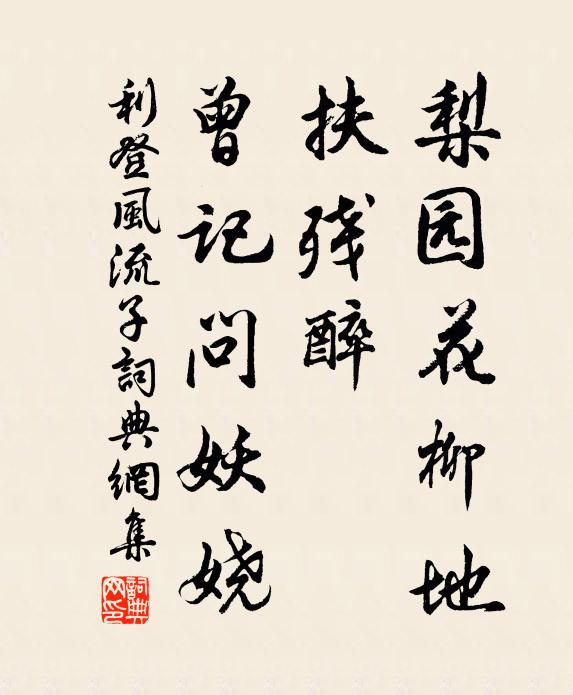 梨园花柳地
扶残醉
曾记问妖娆
利登風流子詞典網集
詞典網印